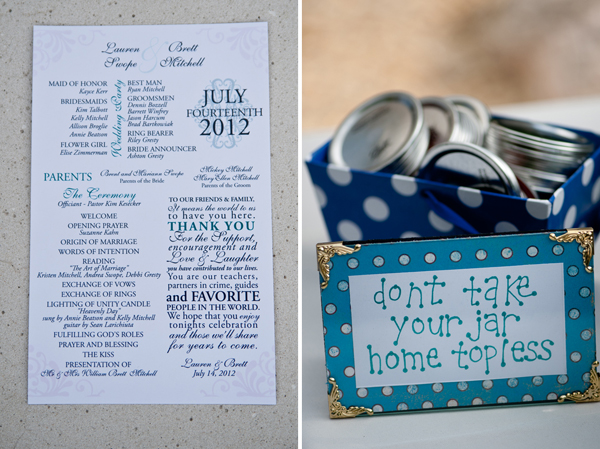 Lauren & Brett
Swope Mitchell
MAID OF HONOR
Kayce Kerr
BRIDESMAIDS
Kim Talbott
Kelly Mitchell
Allison Broglie
Annie Beatton
FLOWER GIRL
Elise Zimmerman
Wedding Party
BEST MAN
Ryan Mitchell
GROOMSMEN
Dennis Bozzell
Barrett Winfrey
Jason Harcum
Brad Bartkowiak
RING BEARER
Riley Gresty
BRIDE ANNOUNCER
Ashton Gresty
JULY
FOURTEENTH
2012
PARENTS
Brent and Marianne Swope
Parents of the Bride
Mickey Mitchell
Mary Ellen Mitchell
Parents of the Groom
The Ceremony
Officiant - Pastor Kim Kedecker
WELCOME
OPENING PRAYER
Suzanne Kahn
ORIGIN OF MARRIAGE
WORDS OF INTENTION
READING
"The Art of Marriage"
Kristen Mitchell, Andrea Swope, Debbi Gresty
EXCHANGE OF VOWS
EXCHANGE OF RINGS
LIGHTING OF UNITY CANDLE
"Heavenly Day"
sung by Annie Beatton and Kelly Mitchell
guitar by Sean Larichiuta
FULFILLING GOD'S ROLES
PRAYER AND BLESSING
THE KISS
PRESENTATION OF
Mr & Mrs William Brett Mitchell
TO OUR FRIENDS & FAMILY,
It means the world to us
to have you here.
THANK YOU
For the Support,
encouragement and
Love & Laughter
you have contributed to our lives.
You are our teachers,
partners in crime, guides
and FAVORITE
PEOPLE IN THE WORLD.
We hope that you enjoy
tonights celebration
and those we'll share
for years to come.
Lauren & Brett
July 14, 2012
dont take
your jar
home topless